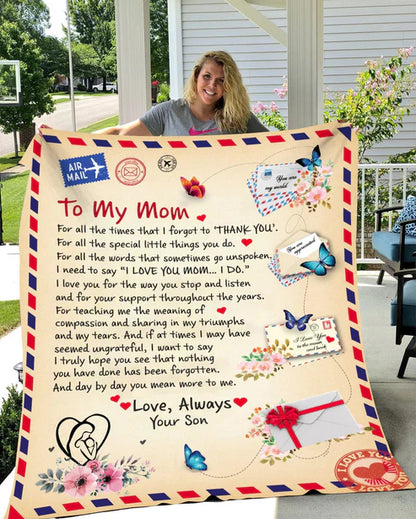 AIR
MAIL
To My Mom
For all the times that I forgot to 'THANK YOU'.
For all the special little things you do.
For all the words that sometimes go unspoken,
I need to say "I LOVE YOU MOM... I DO."
I love you for the way you stop and listen
and for your support throughout the years.
For teaching me the meaning of
compassion and sharing in my triumphs
and my tears. And if at times I may have
seemed ungrateful, I want to say
I truly hope you see that nothing
you have done has been forgotten.
And day by day you mean more to me.
Love, Always
Your Son
You are
my world
You are
I Love You
to the moon
and back
I LOVE YOU
I LOVE YOU